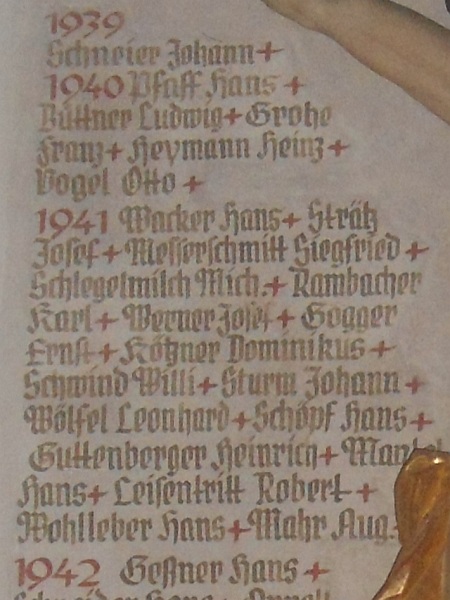 1939
Schneier Johann +
1940 Pfaff Hans +
Büttner Ludwig + Grohe
Franz + Heymann Heinz +
Vogel Otto +
1941 Wacker Hans + Strätz
Josef + Messerschmitt Siegfried +
Schlegelmilch Mich. + Rambacher
Karl + Werner Josef + Gogger
Ernst + Kötzner Dominikus +
Schwind Willi + Sturm Johann +
Wölfel Leonhard + Schöpf Hans +
Guttenberger Heinrich + Mantel
Hans + Leisentritt Robert +
Wohlleber Hans + Mahr Aug.
1942 Geßner Hans +
Schneider Hans +